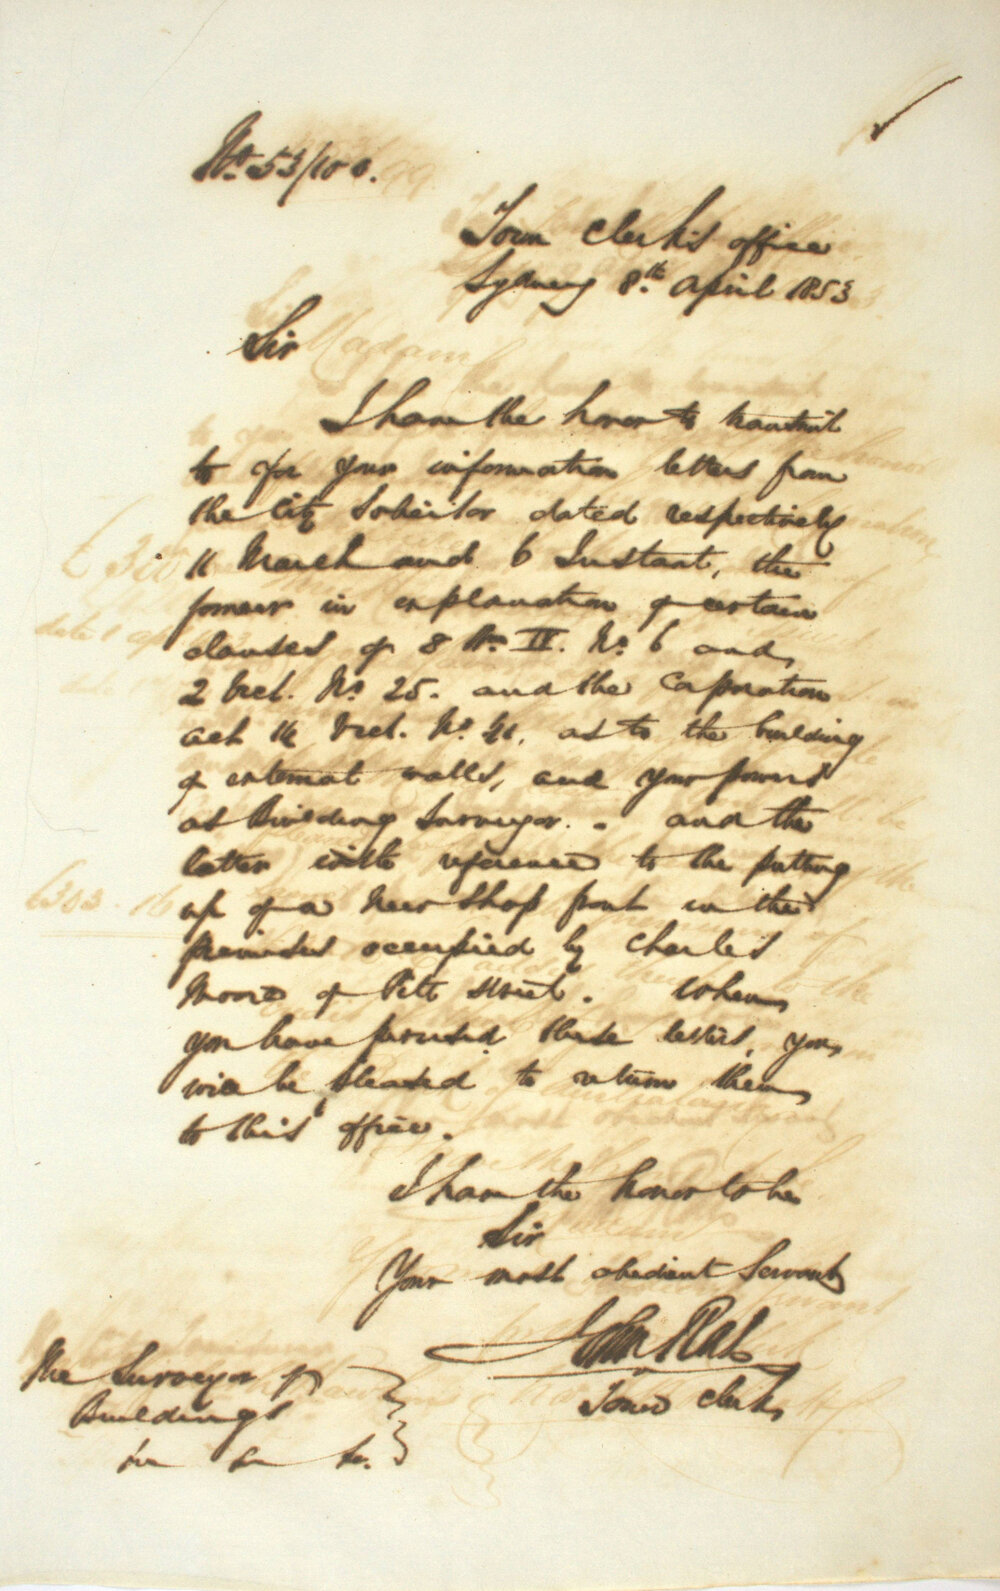 No. 53/100.
Town Clerk's office
Sydney 8th April 1853
Sir
I have the honor to transmit
to for your information letters from
the City Solicitor dated respectively
11 March and 6 Instant, the
former in explanation of certain
clauses of 8 Wm IV. No. 6 and
2 Vict. No. 25. and the Corporation
act 14 Vict. No. 41, as to the building
of external walls, and your powers
as Building Surveyor. - and the
latter with reference to the putting
up of a New Shop front in the
premises occupied by Charles
Moore of Pitt Street. When
you have perused these letters, you
will be pleased to return them
to this office.
I have the honor to be
Sir
Your most obedient Servant
John
Town Clerk
The Surveyor of
Buildings